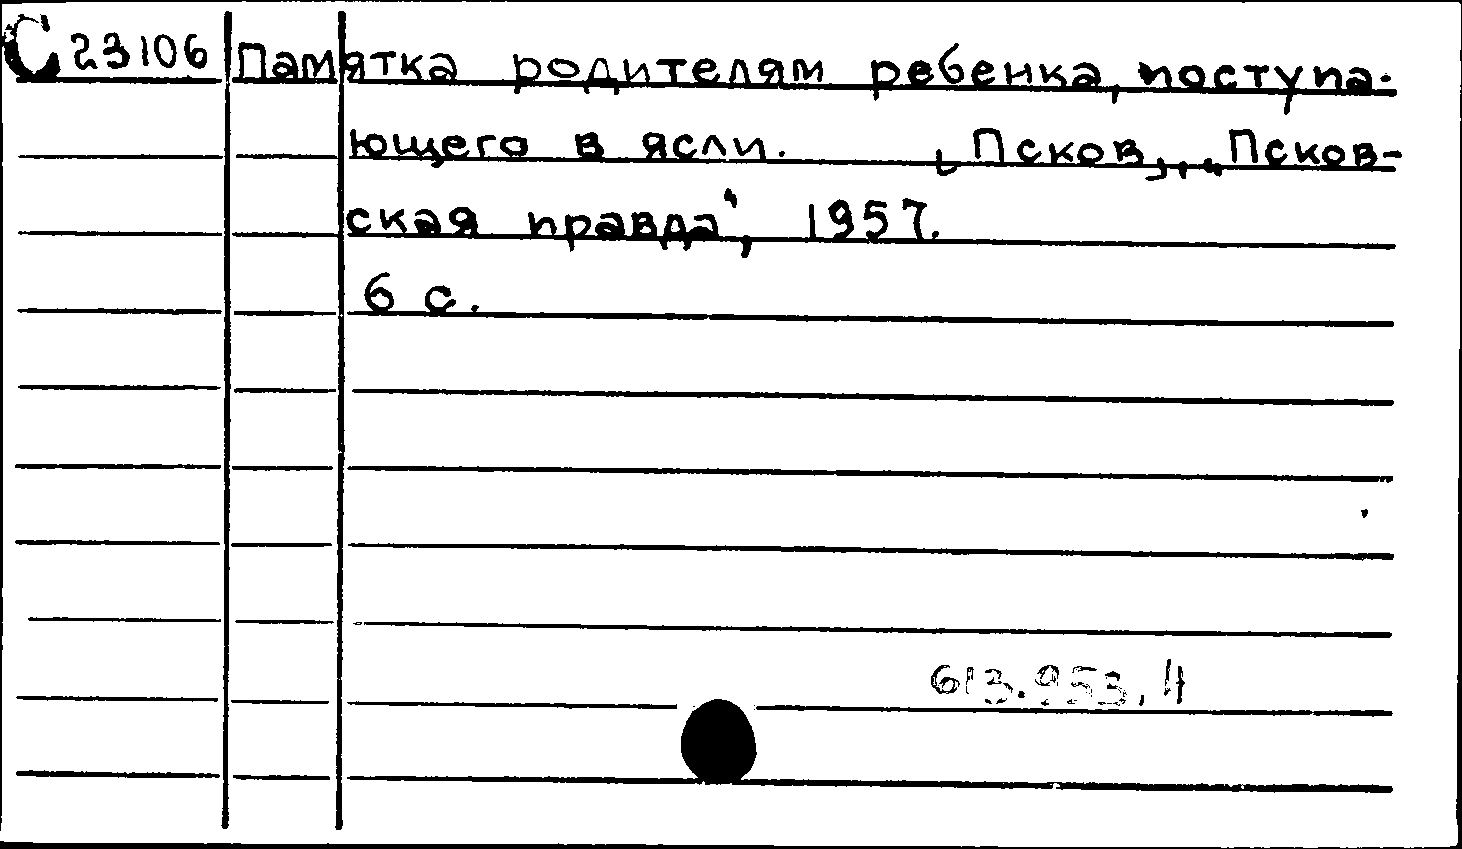 С 23106 Памятка родителям ребенка, поступа-
ющего в ясли. [Псков], „Псков-
ская правда“, 1957.
6 с.
613.953.4